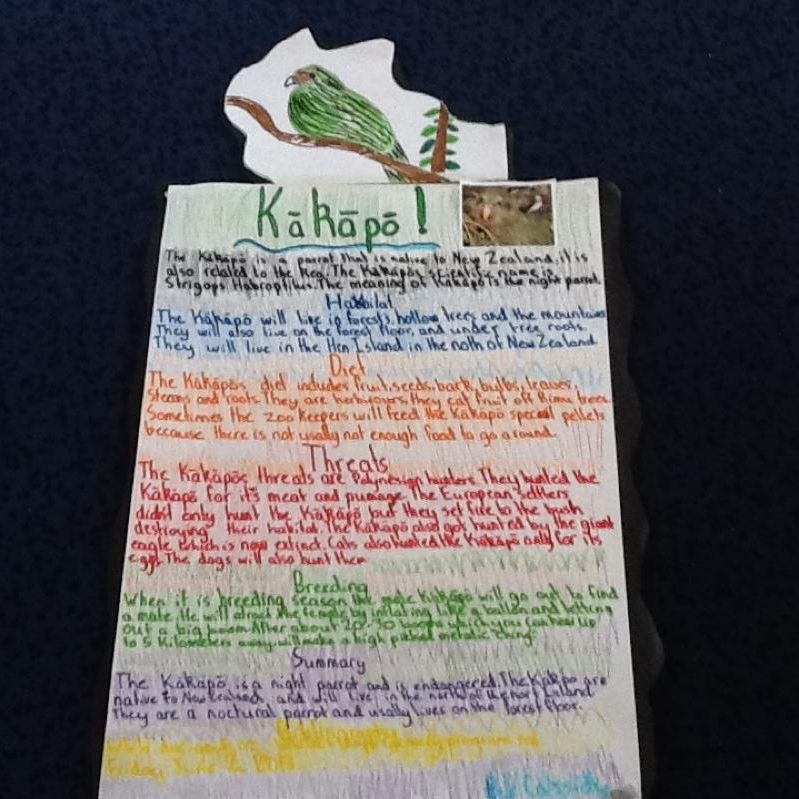 Kākāpō!
The Kākāpō is a parrot that is native to New Zealand, it is
also related to the Kea. The Kākāpōs scientific name is
Strigops Habroptilus. The meaning of Kākāpō is the night parrot.
Habitat
The Kākāpō will live in forests, hollow trees and the mountains
They will also live on the forest floor, and under tree roots.
They will live in the Hen Island in the noth of New Zealand.
Diet
The Kākāpōs diet includes fruit, seeds, bark, bulbs, leaves,
steams and roots. They are herbivores, they eat fruit off Rimu trees.
Sometimes the zoo keepers will feed the Kākāpō special pellets
because there is not usally not enough food to go around.
Threats
The Kākāpōs threats are Polynesian hunters. They hunted the
Kākāpō for it's meat and pumage. The European settlers
didn't only hunt the Kākāpō but they set fire to the bush
destroying their habitat. The Kākāpō also got hunted by the giant
eagle which is now extinct. Cats also hunted the Kākāpō only for its
egg. The dogs will also hunt them
Breeding
When it is breeding season the male Kākāpō will go out to find
a mate. He will atract the female by inflating like a ballon and letting
out a big boom. After about 20-30 booms which you can hear up
to 5 Kilometers away, will make a high pitched metalic ching.
Summary
The Kākāpō is a night parrot and is endangered. The Kākāpō are
native to New Zealand, and will live in the north of the north Island.
They are a noctural parrot and usally lives on the forest floor.
Friday June
By